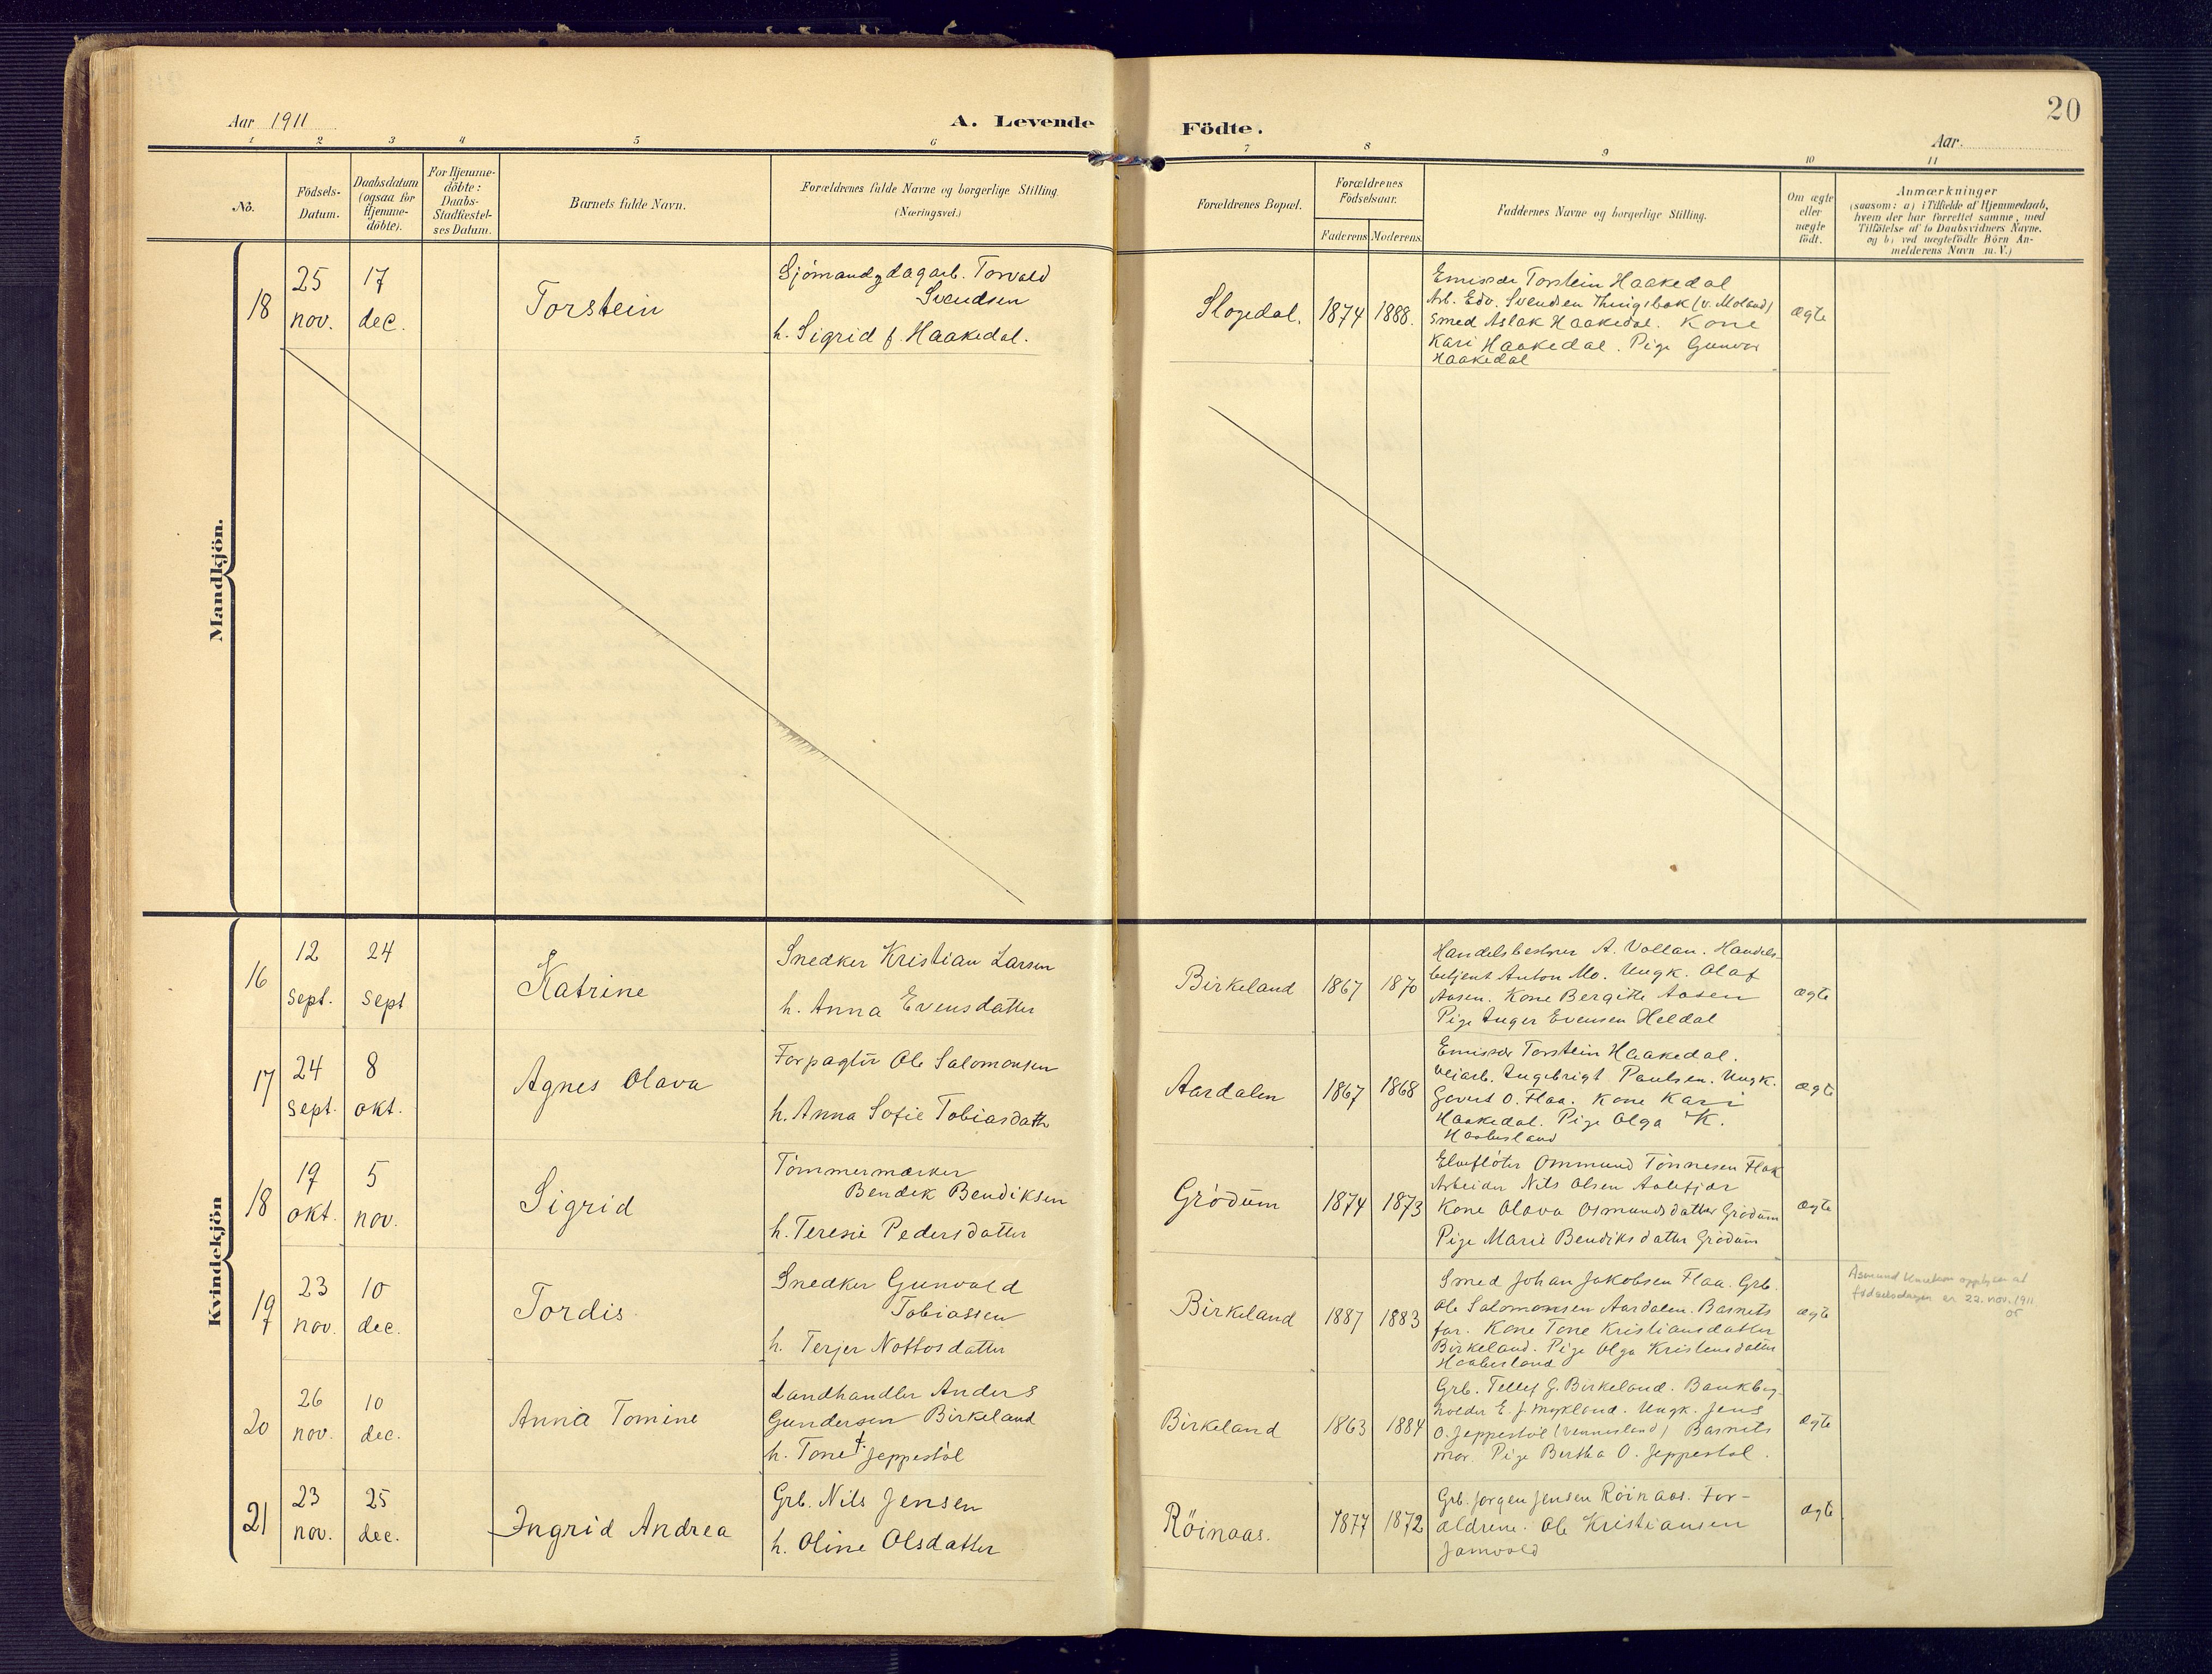 Aar 1911
A. Levende Födte.
20
Aar.
1 2 3 4 5 6 7 8 9 10 11
No.
Födsels-
Datum.
Daabsdatum
(ogsaa for
Hjemme-
döbte).
For Hjemme-
döbte:
Daabs-
Stadfæstel-
ses Datum.
Barnets fulde Navn.
Forældrenes fulde Navne og borgerlige Stilling.
(Næringsvei.)
Forældrenes Bopæl.
Forældrenes
Födselsaar.
Faderens
Moderens.
Faddernes Navne og borgerlige Stilling.
Om ægte
eller
uægte
födt.
Anmærkninger
(saasom: a) i Tilfælde af Hjemmedaab,
hvem der har forrettet samme, med
Tilföielse af to Daabsvidners Navne,
og b) ved uægtefödte Börn An-
melderens Navn m. V.)
Mandkjön.
18
25
nov.
17
dec.
Torstein
Sjömand g dagarb. Torvald
Svendsen
h. Sigrid f. Haakedal.
Slogedal.
1874
1888.
Emissær Torstein Haakedal
Arb. Edv. Svendsen (v. Moland)
Smed Aslak Haakedal. Kone
Kari Haakedal. Pige Gunvor
Haakedal
ægte
Kvindekjön
16
12
Sept.
24
Sept
Katrine
Snedker Kristian Larsen
h. Anna Evensdatter
Birkeland
1867
1870
Handelsbestyrer A. Vollan. Handels-
betjent Anton Mo. Ungk. Olaf
Aasen. Kone Bergitte Aasen
Pige Inger Evensen Heldal
ægte
17
24
Sept.
8
okt.
Agnes Olava
Forpagter Ole Salomonsen
h. Anna Sofie Tobiasdattr
Aardalen
1867
1868
Emissær Torstein Haakedal.
Veiarb. Ingebrigt Paulsen. Ungk.
Govert O. Flaa. Kone Kari
Haakedal. Pige Olga K.
Haabesland
ægte
18
19
okt.
5
nov.
Sigrid
Tömmermærker
Bendik Bendiksen
h. Teresie Pedersdatter
Grödum
1874
1873
Elveflöter Ommund Tönnesen Flak
Arbeider Nils Olsen Aalefjær
Kone Olava Osmundsdatter Grödum
Pige Marie Bendiksdatter Grödum
ægte
19
23
nov.
10
dec.
Tordis
Snedker Gunvald
Tobiassen
h. Terjer Nottosdatter
Birkeland
1887
1883
Smed Johan Jakobsen Flaa. Grb.
Ole Salomonsen Aardalen. Barnets
far. Kone Tone Kristiansdatter
Birkeland. Pige Olga Kristensdatter
Haabesland
ægte
Asmund Knutson opplyser at
fødselsdagen er 22. nov. 1911
20
26
nov.
10
dec.
Anna Tomine
Landhandler Anders
Gundersen Birkeland
h. Tone f. Jeppestöl
Birkeland
1863
1884
Grb. Tellef G. Birkeland. Bankbog-
holder E. J. Mykland. Ungk. Jens
O. Jeppestöl (Vennesland) Barnets
mor. Pige Bertha O. Jeppestöl.
ægte
21
23
nov.
25
dec.
Ingrid Andrea
Grb. Nils Jensen
h. Oline Olsdatter
Röinaas.
1877
1872
Grb. Jörgen Jensen Röinaas. For-
ældrene. Ole Kristiansen
Jamvold
ægte